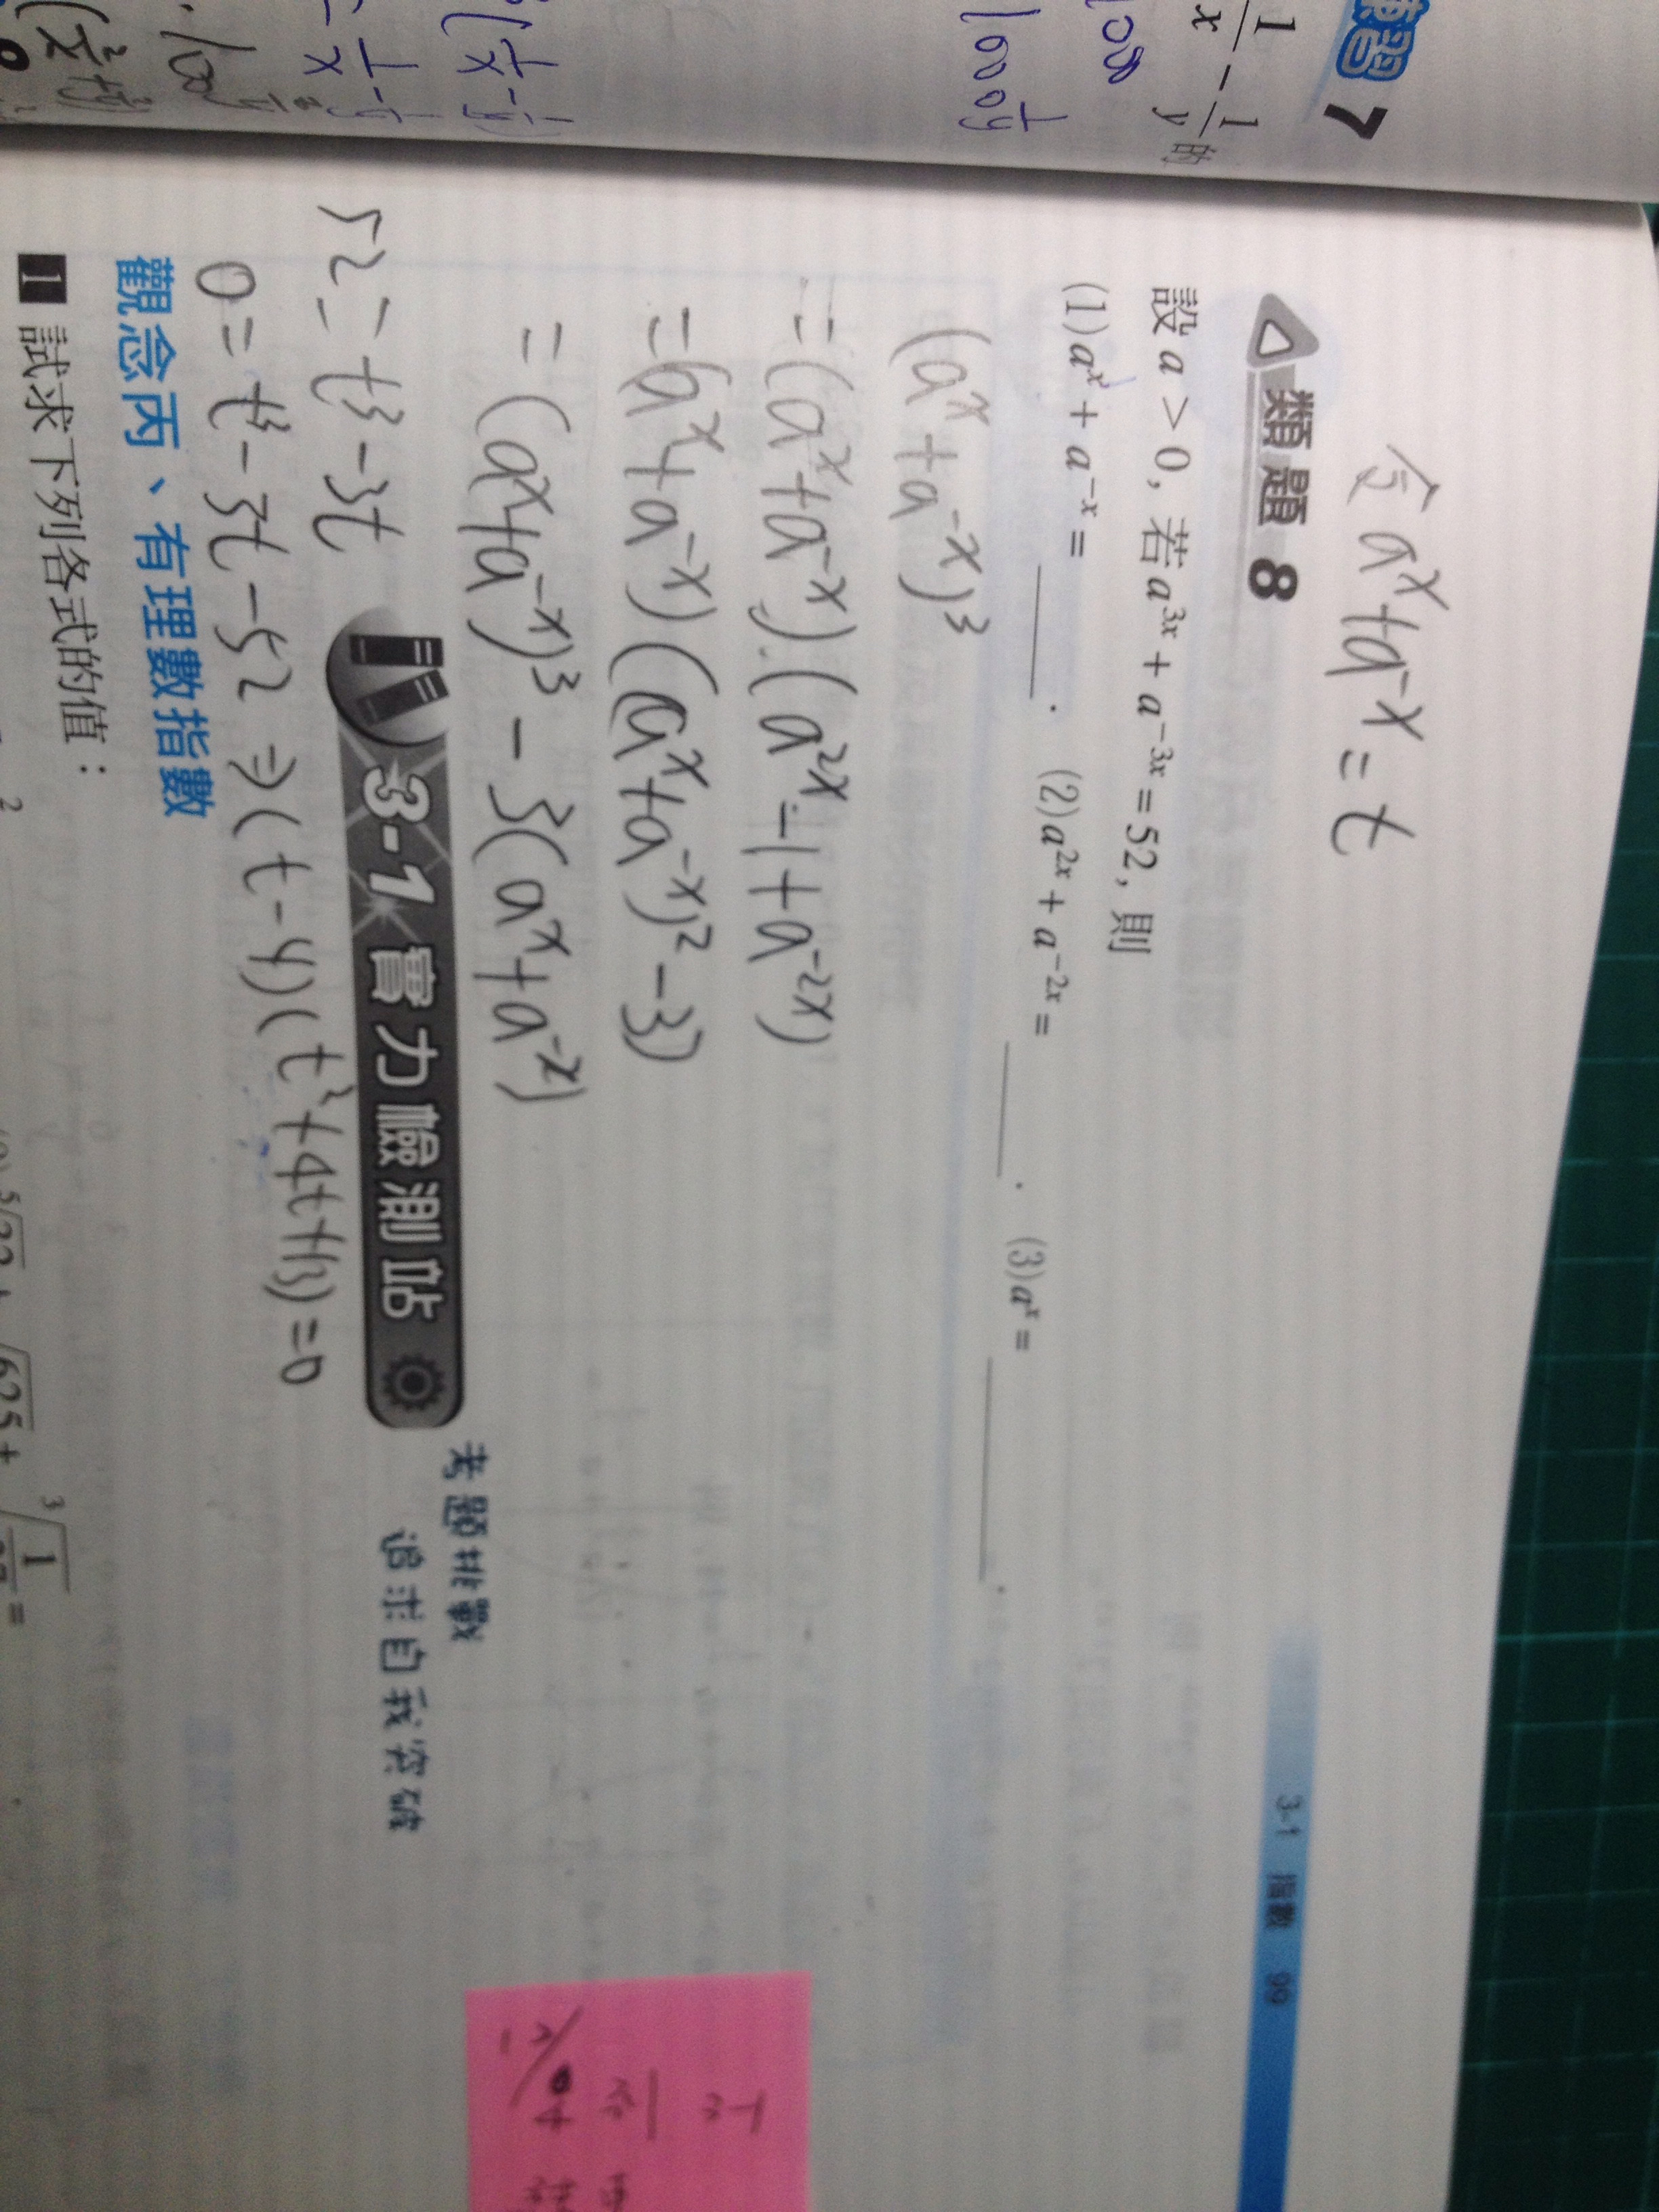 練習 7
1/x - 1/y 的
令 a^x + a^-x = t
3-1 指數 99
類題 8
設 a > 0, 若 a^3x + a^-3x = 52, 則
(1) a^x + a^-x = ______. (2) a^2x + a^-2x = ______. (3) a^x = ______.
(a^x + a^-x)^3
= (a^x + a^-x)·(a^2x - 1 + a^-2x)
= (a^x + a^-x)((a^x + a^-x)^2 - 3)
= (a^x + a^-x)^3 - 3(a^x + a^-x)
52 = t^3 - 3t
3-1 實力檢測站
考題挑戰
追求自我突破
0 = t^3 - 3t - 52 ⇒ (t - 4)(t^2 + 4t + 13) = 0
觀念丙、有理數指數
1 試求下列各式的值：